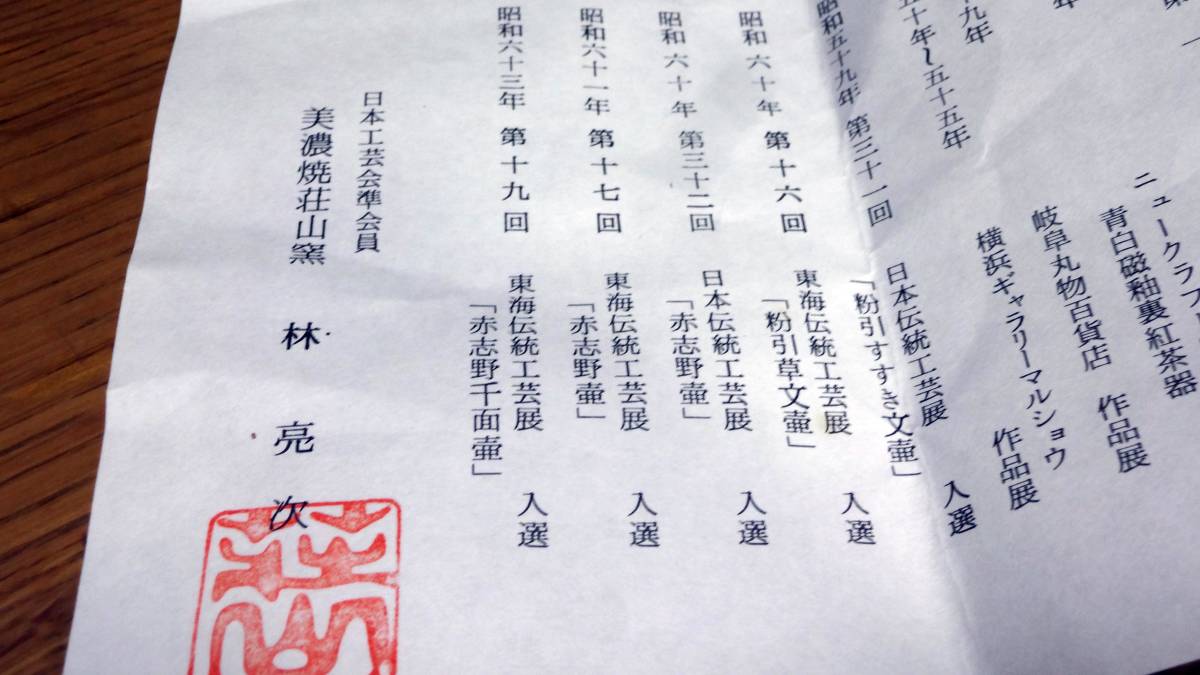 ニュークラフ
青白磁釉裏紅茶器
岐阜丸物百貨店 作品展
十九年
五十年～五十五年
横浜ギャラリーマルショウ 作品展
昭和五十九年 第三十一回 日本伝統工芸展 入選
「粉引すすき文壷」
昭和六十年 第十六回 東海伝統工芸展 入選
「粉引草文壷」
昭和六十年 第三十二回 日本伝統工芸展 入選
「赤志野壷」
昭和六十一年 第十七回 東海伝統工芸展 入選
「赤志野壷」
昭和六十三年 第十九回 東海伝統工芸展 入選
「赤志野千面壷」
日本工芸会準会員
美濃焼荘山窯 林亮次